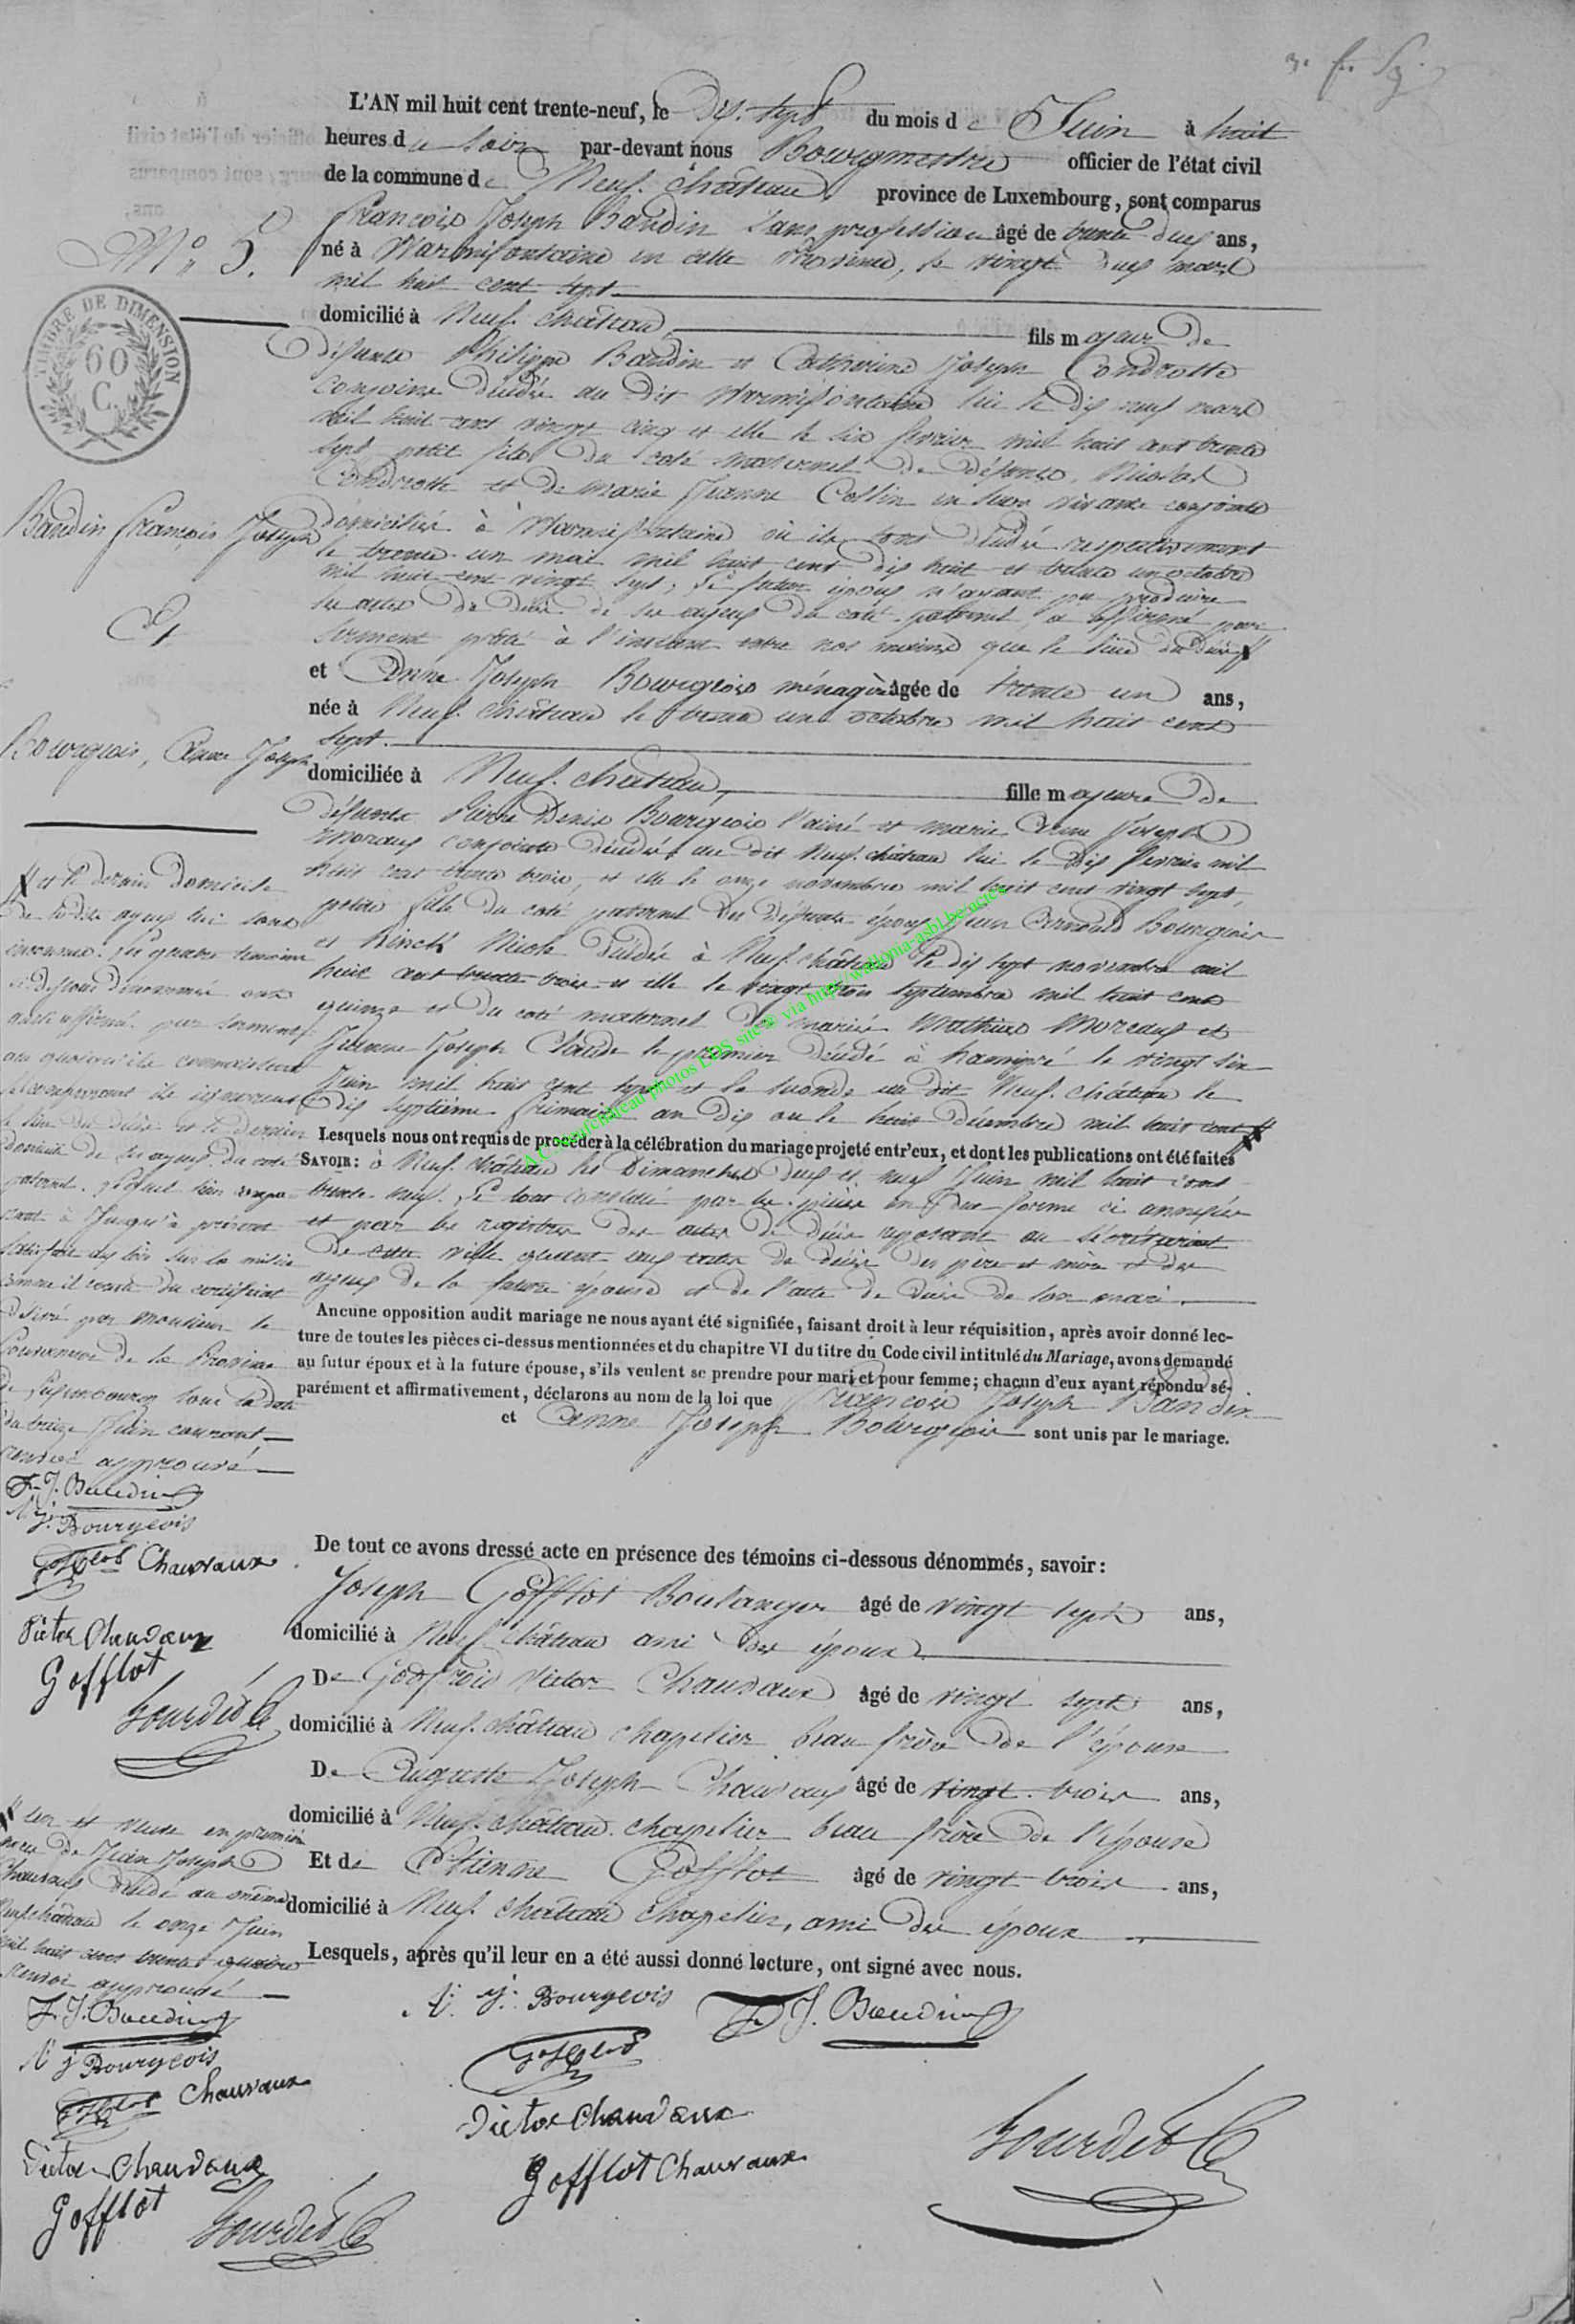 L'AN mil huit cent trente-neuf, le dix-sept du mois de Juin à huit
heures du soir par-devant nous Bourgmestre officier de l'état civil
de la commune de Neuf-château province de Luxembourg, sont comparus
François Joseph Baudin sans profession âgé de trente deux ans,
né à Warmifontaine en cette Province, le vingt deux mars
mil huit cent sept
domicilié à Neuf-château, fils majeur de
défunts Philippe Baudin et Catherine Joseph Condrotte
conjoints décédés au dit Warmifontaine lui le dix neuf mars
mil huit cent vingt cinq et elle le six février mil huit cent trente
sept petit fils du coté maternel de défunts Nicolas
Condrotte et de marie Jeanne Collin en leur vivant conjoints
domiciliés à Warmifontaine où ils sont décédés respectivement
le trente un mai mil huit cent dix huit et trente un octobre
mil huit cent vingt sept; Le futur époux n'ayant pu produire
les actes de décès de ses ayeux du coté paternel a affirmé par
serment prêté à l'instant entre nos mains que le lieu du décès
et Anne Joseph Bourgeois ménagère âgée de trente un ans,
née à Neuf-château le trente un octobre mil huit cent
sept.
domiciliée à Neuf-château, fille majeure de
défunts Pierre Denis Bourgeois l'ainé et marie Anne Joseph
Moraux conjoints décédés au dit Neuf-château lui le dix février mil
huit cent trente trois, et elle le onze novembre mil huit cent vingt sept,
petite fille du coté paternel des défunts époux Jean Arnould Bourgeois
et Hinck Nicole décédés à Neuf-château le dix sept novembre mil
huit cent trente trois et elle le vingt trois septembre mil huit cent
quinze et du coté maternel des mariés Mathieu Moreaux et
Jeanne Joseph Claude le premier décédé à hamipré le vingt six
Juin mil huit cent sept et la seconde au dit Neuf-château le
dix septième frimaire an dix ou le huit décembre mil huit cent
Lesquels nous ont requis de procéder à la célébration du mariage projeté entr'eux, et dont les publications ont été faites
SAVOIR: à Neuf-château les Dimanches deux et neuf Juin mil huit cent
trente-neuf. Le tout constaté par les pièces en due forme ci annexées
et par les registres des actes de décès reposant au Sécrétariat
de cette ville quant aux actes de décès des père et mère et des
ayeux de la future épouse et de l'acte de décès de son mari.
Aucune opposition audit mariage ne nous ayant été signifiée, faisant droit à leur réquisition, après avoir donné lec-
ture de toutes les pièces ci-dessus mentionnées et du chapitre VI du titre du Code civil intitulé du Mariage, avons demandé
au futur époux et à la future épouse, s'ils veulent se prendre pour mari et pour femme; chacun d'eux ayant répondu sé-
parément et affirmativement, déclarons au nom de la loi que François Joseph Baudin
et Anne Joseph Bourgeois sont unis par le mariage.
De tout ce avons dressé acte en présence des témoins ci-dessous dénommés, savoir:
Joseph Gofflot Boulanger âgé de vingt sept ans,
domicilié à Neuf-château ami des époux
De Godfroid Victor Chauvaux âgé de vingt sept ans,
domicilié à Neuf-château chapelier beau frère de l'épouse
De Auguste Joseph Chauvaux âgé de vingt-trois ans,
domicilié à Neuf-château chapelier beau frère de l'épouse
Et de Etienne Gofflot âgé de vingt trois ans,
domicilié à Neuf-château chapelier, ami des époux
Lesquels, après qu'il leur en a été aussi donné lecture, ont signé avec nous.
A. j. Bourgeois F. J. Baudin
Gofflot
Victor Chauvaux
Gofflot Chauvaux
Bourdet
N° 5.
TIMBRE DE DIMENSION
60
C.
Baudin François Joseph
Et
Bourgeois, Anne Joseph
et le dernier domicile
de ses dits ayeux lui sont
inconnus. Les quatre témoins
ci-dessous dénommés ont
aussi affirmé par serment
que quoiqu'ils connaissent
le comparant ils ignorent
le lieu du décès et le dernier
domicile de ses ayeux du coté
paternel. Lequel bien
à Jusqu'à présent
satisfait aux lois sur la milice
comme il conste du certificat
délivré par monsieur le
Gouverneur de la Province
de Luxembourg sous la date
du treize Juin courant,
renvoi approuvé
F. J. Baudin
A j. Bourgeois
Gofflot Chauvaux
Victor Chauvaux
Gofflot
Bourdet
un et veuve en première
noces de Jean Joseph
Chauvaux décédé au même
Neufchâteau le onze Juin
mil huit cent trente quatre
renvoi approuvé
F. J. Baudin
A j Bourgeois
Gofflot Chauvaux
Victor Chauvaux
Gofflot
Bourdet